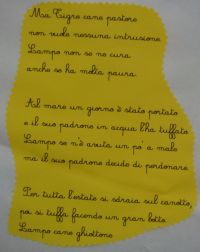 Ma Tigre cane pastore
non vuole nessuna intrusione
Lampo non se ne cura
anche se ha molta paura.
Al mare un giorno è stato portato
e il suo padrone in acqua l'ha tuffato
Lampo se n'è avuta un po' a male
ma il suo padrone decide di perdonare
Per tutta l'estate si sdraia sul canotto,
poi si tuffa facendo un gran botto
Lampo cane ghiottone